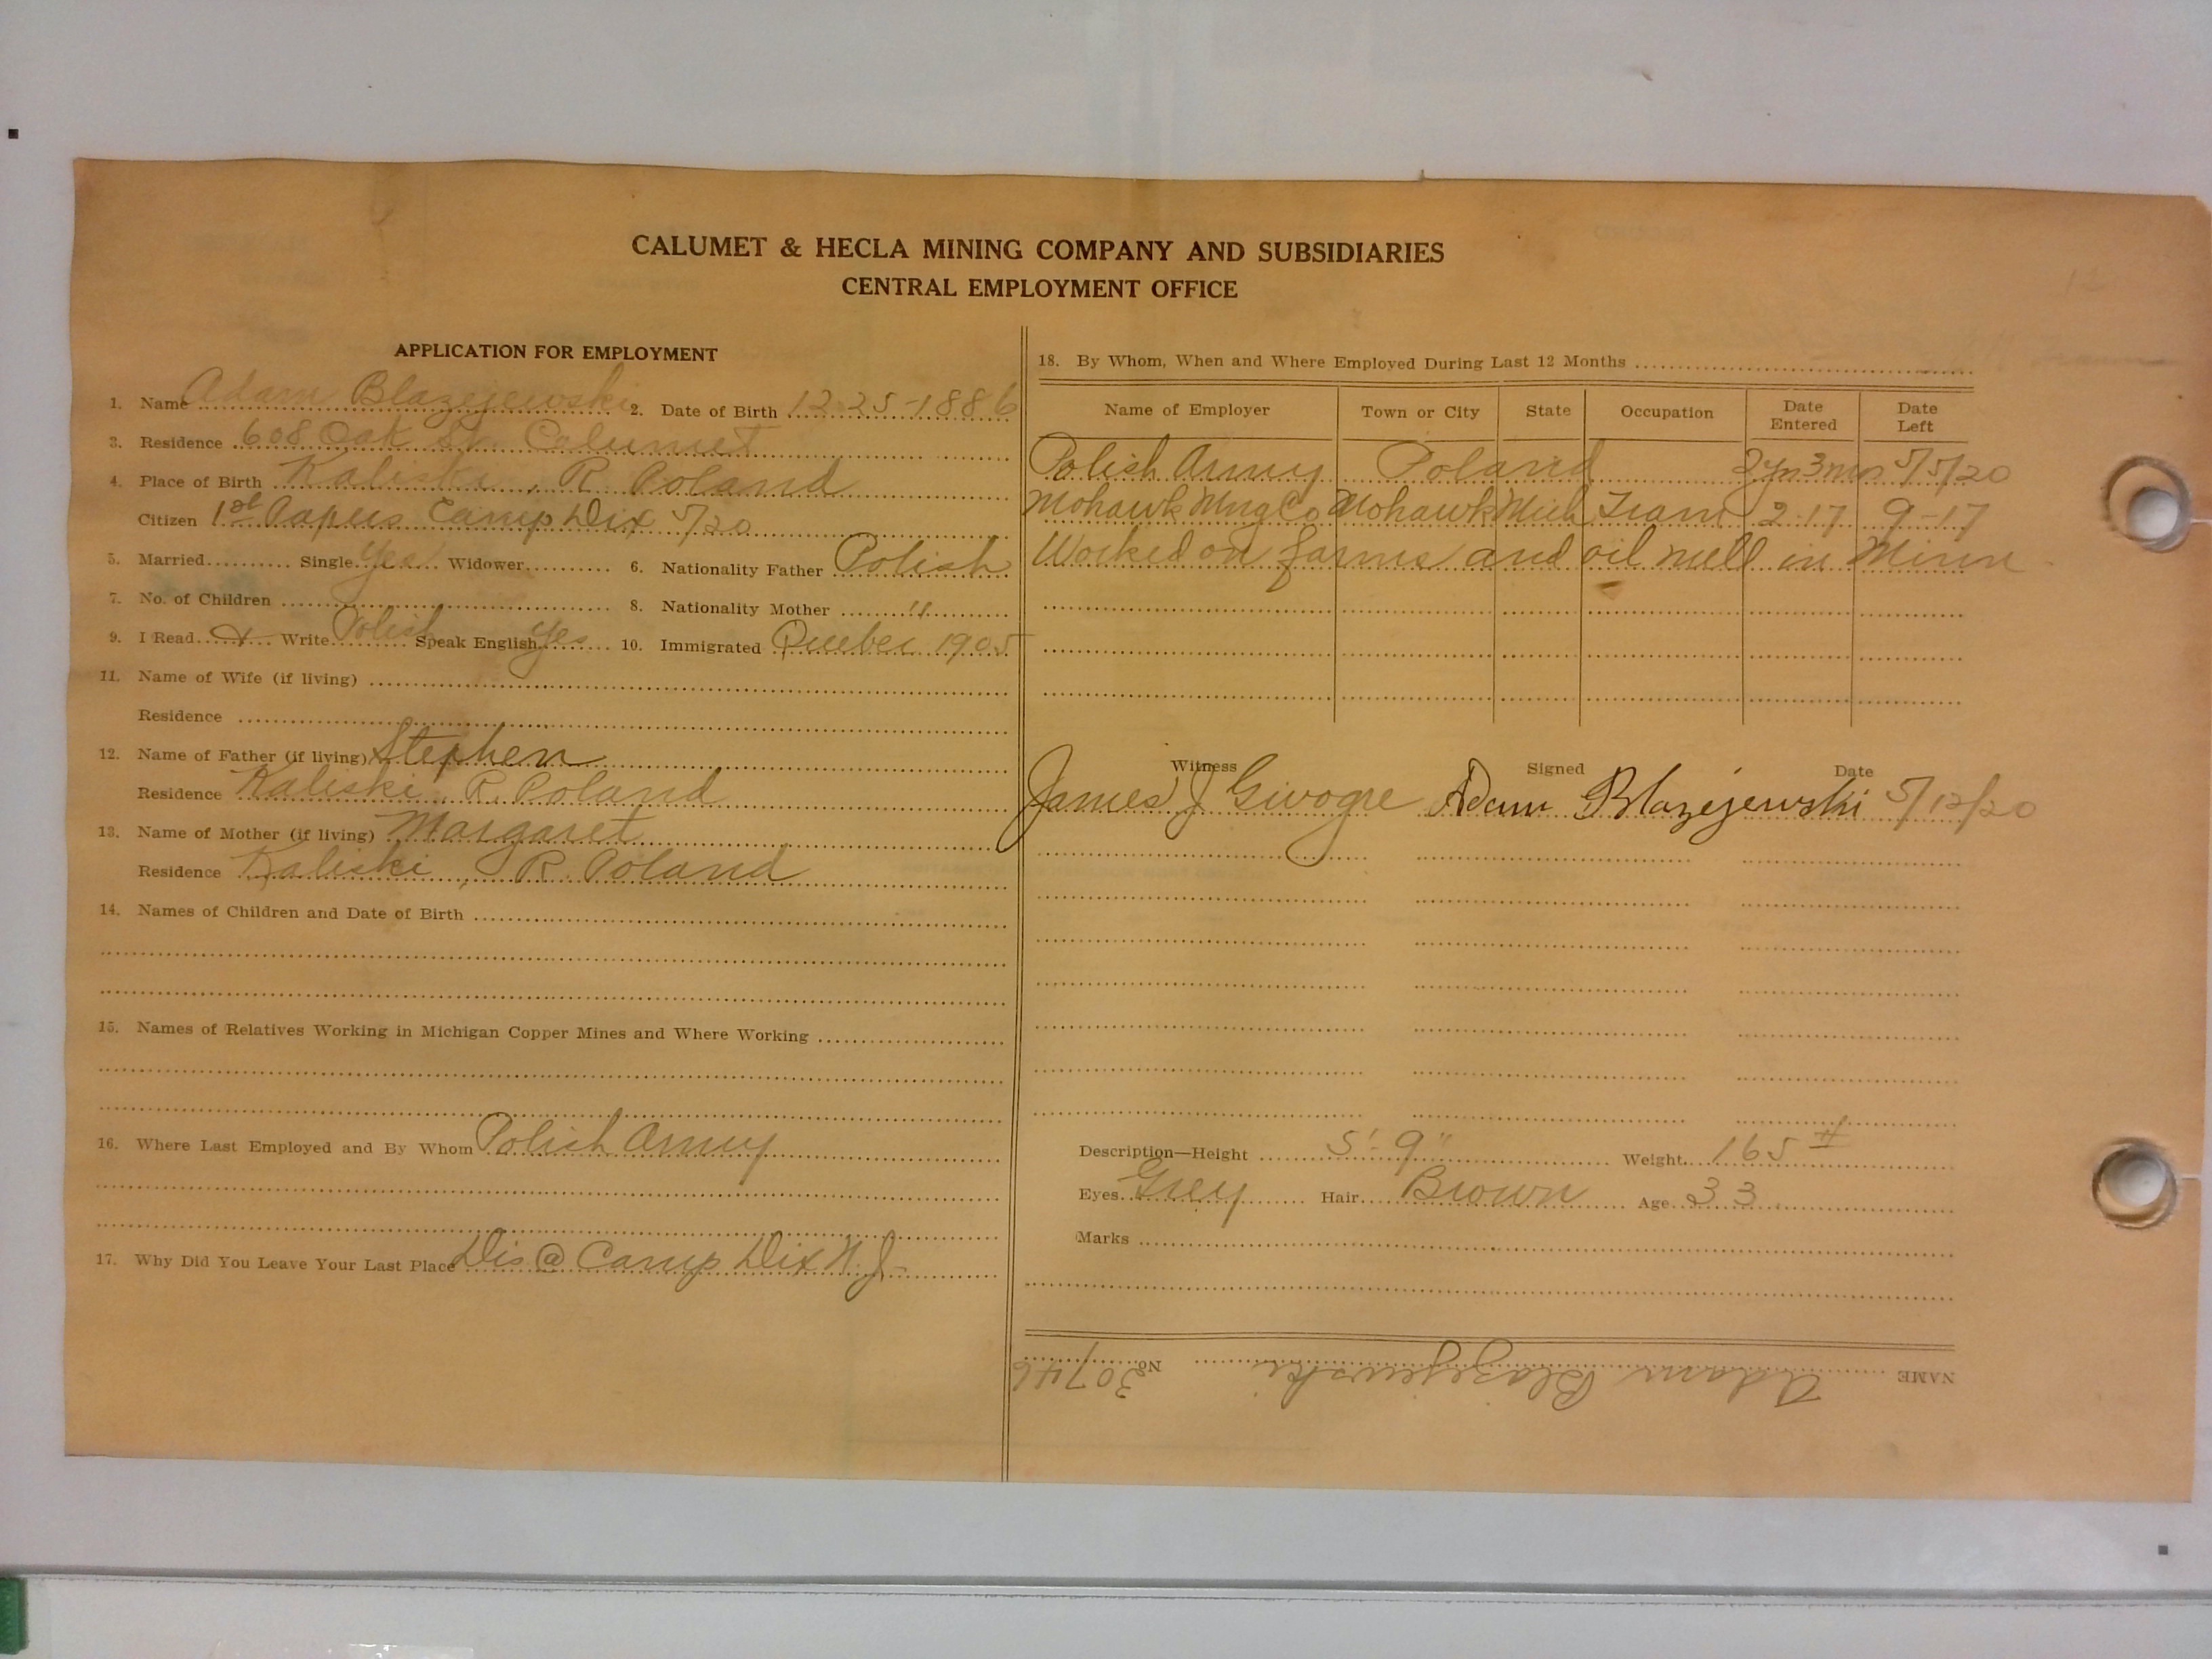 CALUMET & HECLA MINING COMPANY AND SUBSIDIARIES
CENTRAL EMPLOYMENT OFFICE
APPLICATION FOR EMPLOYMENT
1. Name Adam Blazejewski 2. Date of Birth 12-25-1886
3. Residence 608 Oak St. Calumet
4. Place of Birth Kaliski, R. Poland
Citizen 1st Papers Camp Dix 5/20
5. Married Single Yes Widower 6. Nationality Father Polish
7. No. of Children 8. Nationality Mother "
9. I Read x Write Polish Speak English Yes 10. Immigrated Quebec 1905
11. Name of Wife (if living)
Residence
12. Name of Father (if living) Stephen
Residence Kaliski, R. Poland
13. Name of Mother (if living) Margaret
Residence Kaliski, R. Poland
14. Names of Children and Date of Birth
15. Names of Relatives Working in Michigan Copper Mines and Where Working
16. Where Last Employed and By Whom Polish Army
17. Why Did You Leave Your Last Place Dis @ Camp Dix N.J.
18. By Whom, When and Where Employed During Last 12 Months
Name of Employer Town or City State Occupation Date Entered Date Left
Polish Army Poland 2yrs 3mos 5/5/20
Mohawk Mng Co Mohawk Mich Tram 2-17 9-17
Worked on farms and oil mill in Minn
Witness Signed Date
James J Adam Blazejewski 5/12/20
Description—Height 5'-9" Weight 165 #
Eyes Grey Hair Brown Age 33
Marks
NAME Adam Blazejewski No. 30746